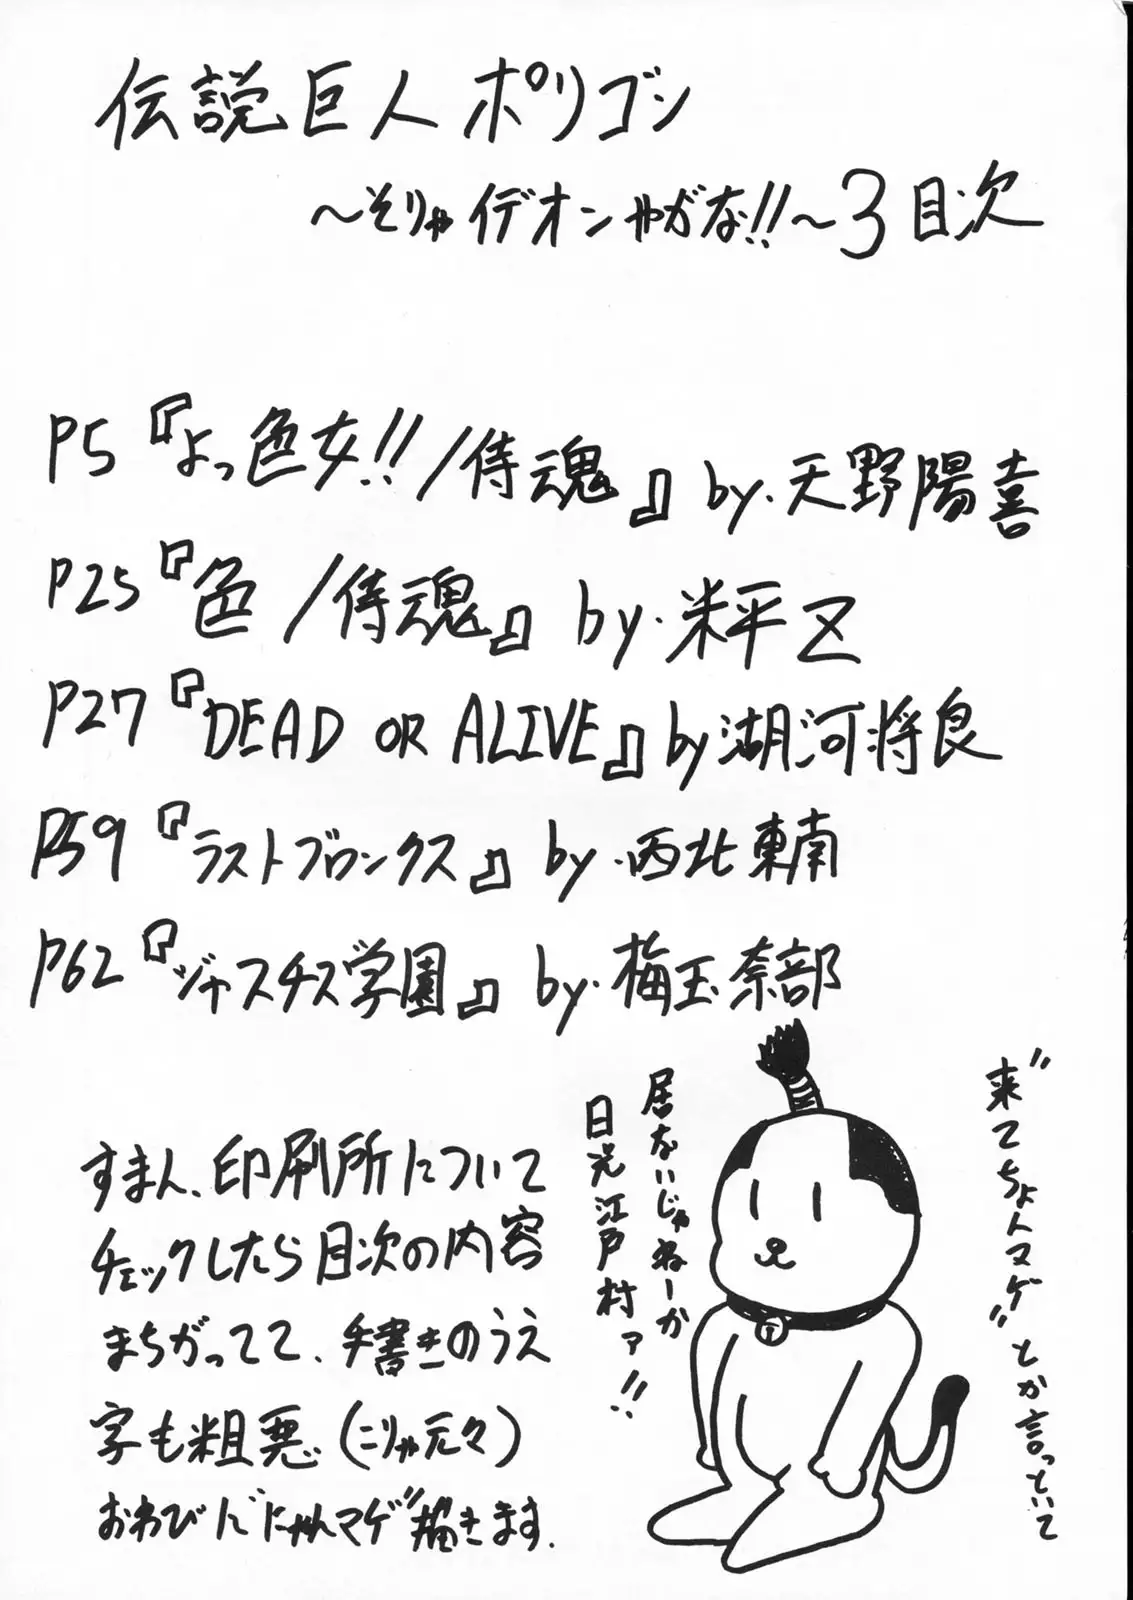 伝説巨人ポリゴン
～そりゃイデオンやがな!!～3目次
P5『よっ色女!!/侍魂』by.天野陽喜
P25『色/侍魂』by.米平Z
P27『DEAD OR ALIVE』by湖河将良
P59『ラストブロンクス』by.西北東南
P62『ジャスチス学園』by.梅玉奈部
すまん、印刷所について
チェックしたら目次の内容
まちがってて、手書きのうえ
字も粗悪(こりゃ元々)
おわびに"にゃんマゲ"描きます.
"来てちょんマゲ"とか言っといて
居ないじゃねーか
日光江戸村ァ!!